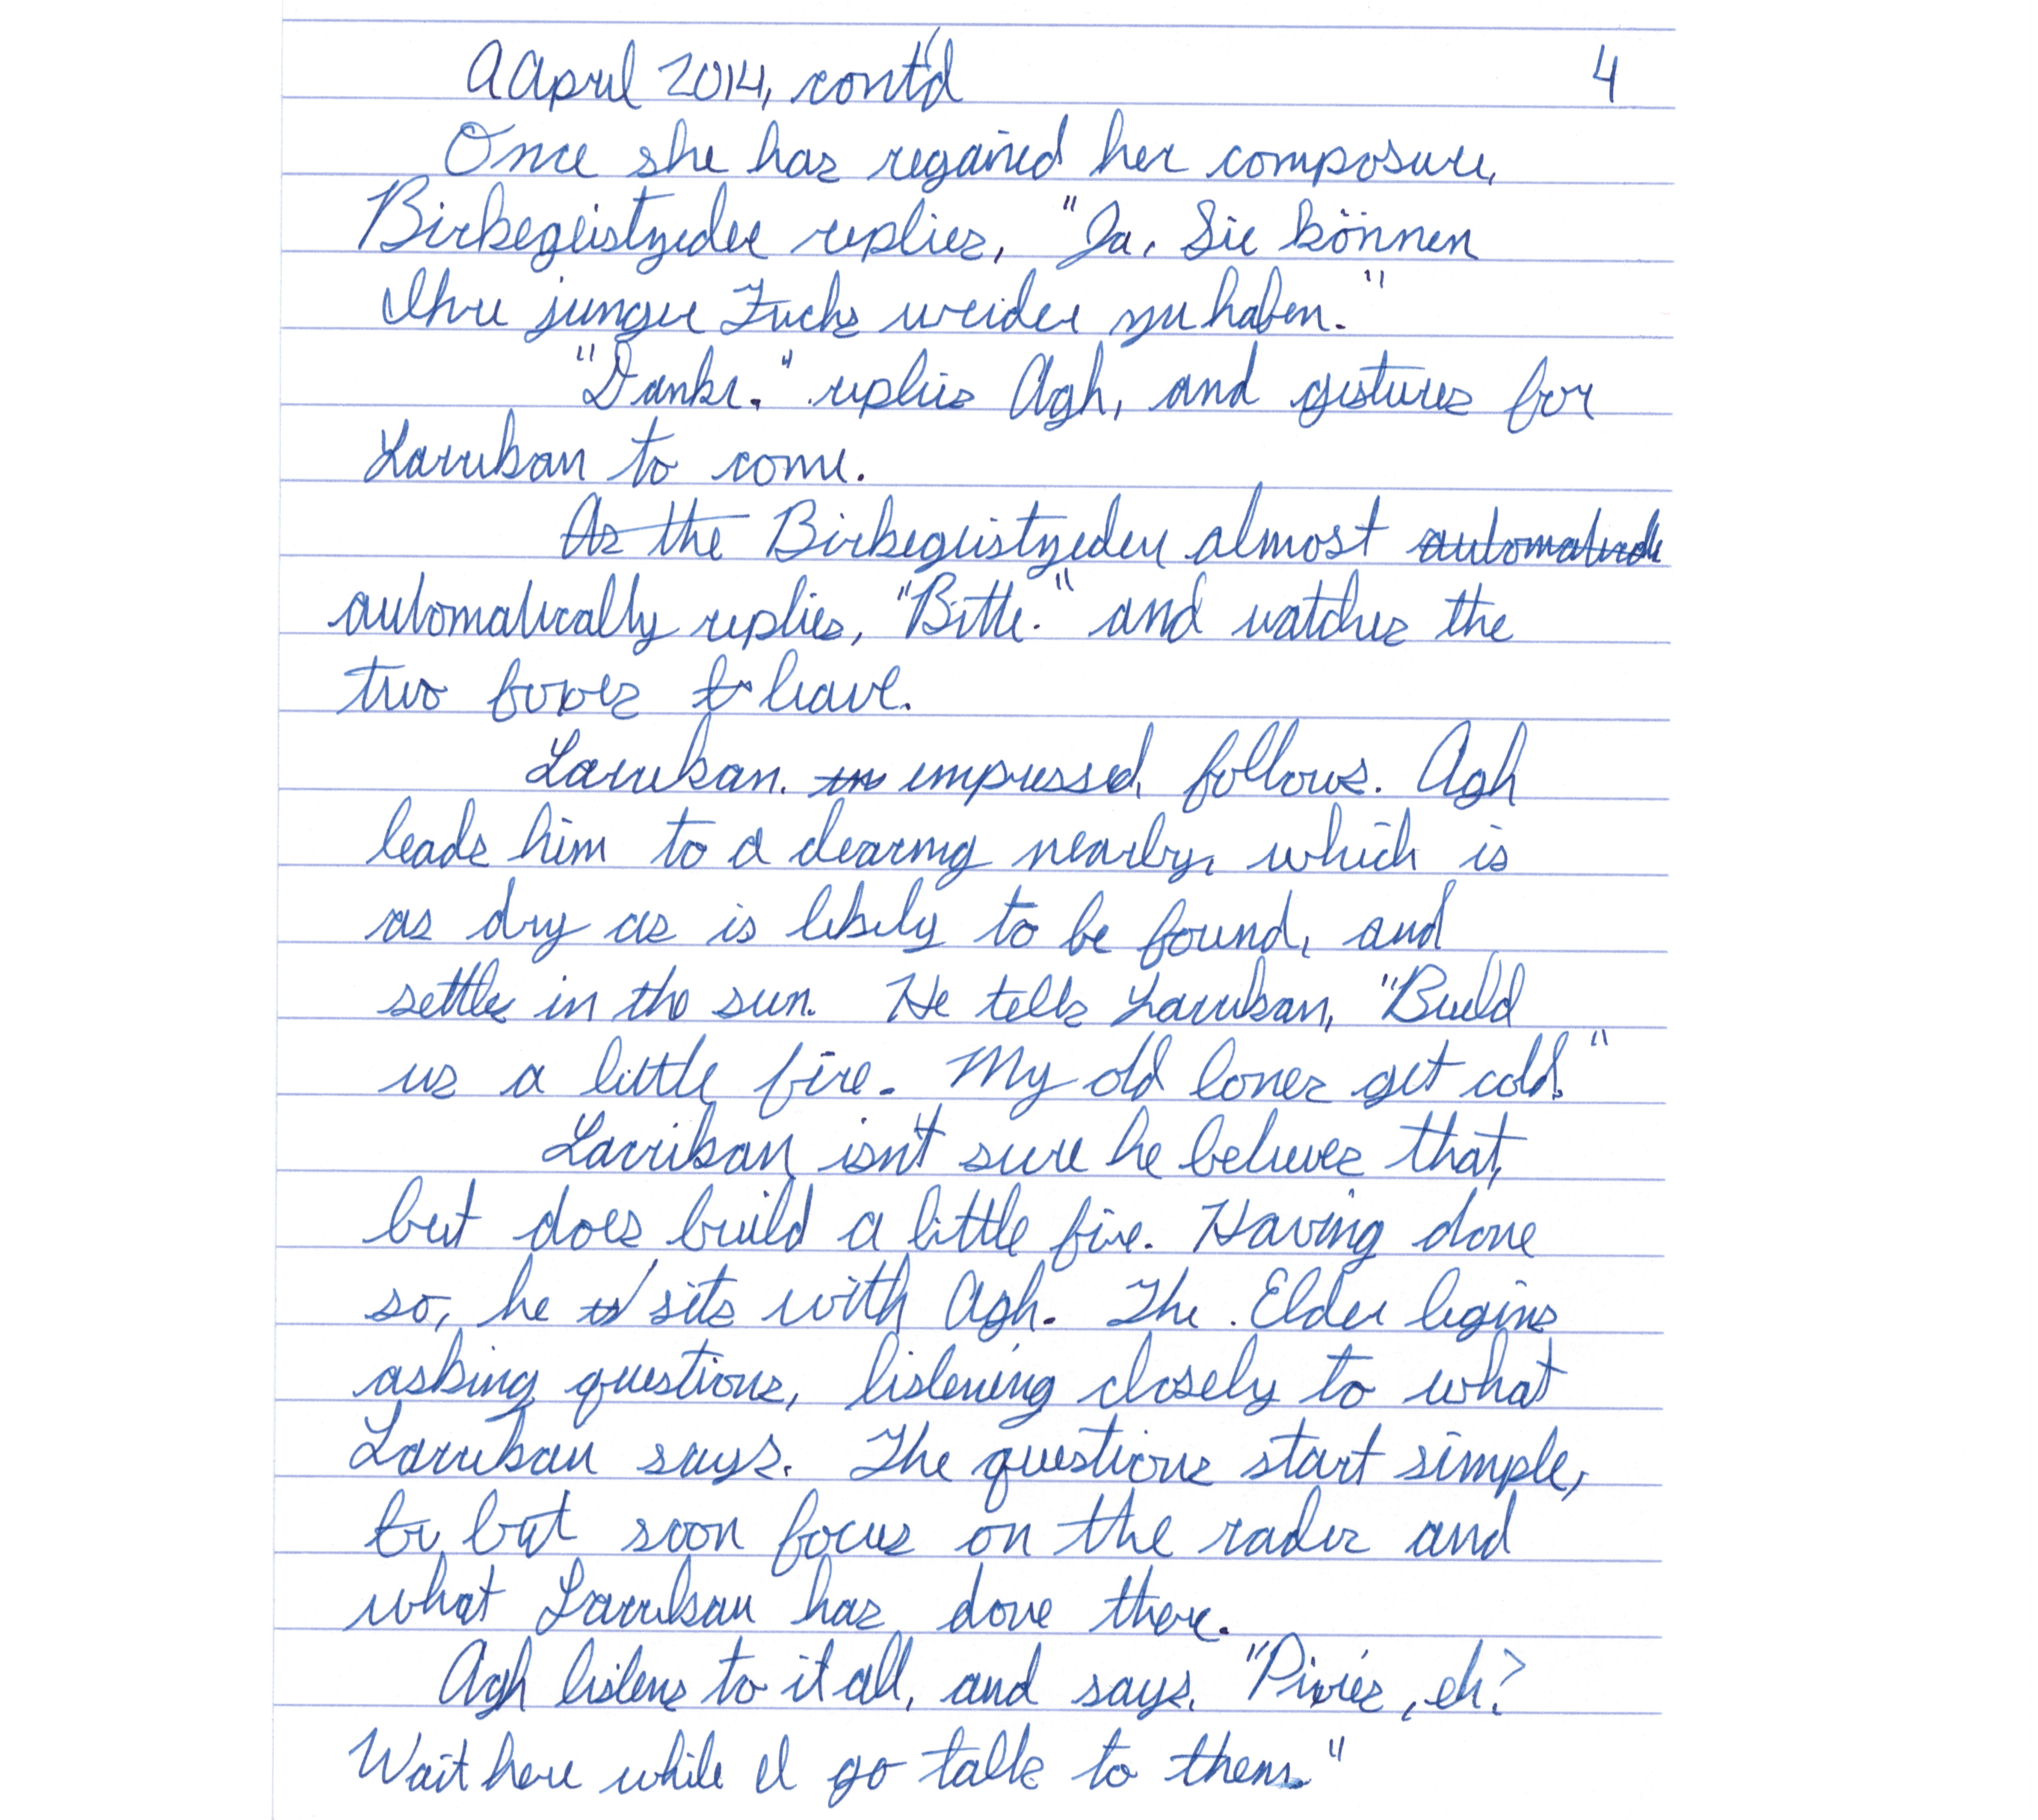 9 April 2014, cont'd 4
Once she has regained her composure,
Birkegeistzeder replies, "Ja, Sie können
Ihre junger Fuchs weider zu haben."
"Danke." replies Agh, and gestures for
Larrikan to come.
As the Birkegeistzeder almost automatick
automatically replies, "Bitte." and watches the
two foxes to leave.
Larrikan, im impressed, follows. Agh
leads him to a clearing nearby, which is
as dry as is likely to be found, and
settles in the sun. He tells Larrikan, "Build
us a little fire. My old bones get cold."
Larrikan isn't sure he believes that,
but does build a little fire. Having done
so, he sits with Agh. The Elder begins
asking questions, listening closely to what
Larrikan says. The questions start simple,
bu but soon focus on the rader and
what Larrikan has done there.
Agh listens to it all, and says, "Pixies, eh?
Wait here while I go talk to them."